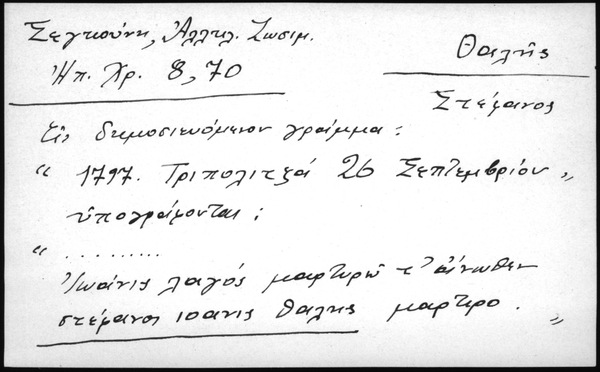 Σεγκούνη, Ἀλληλ. Ζωσιμ.
Ἠπ. Χρ. 8, 70
Θαλῆς
Στέφανος
Εἰς δημοσιευόμενον γράμμα:
“ 1797. Τριπολιτζά 26 Σεπτεμβρίου „
ὑπογράφονται:
“ .........
Ἰωάνις λαγός μαρτυρῶ τ' ἄνωθεν
στέφανος ιοανις θαλης μαρτιρο. „